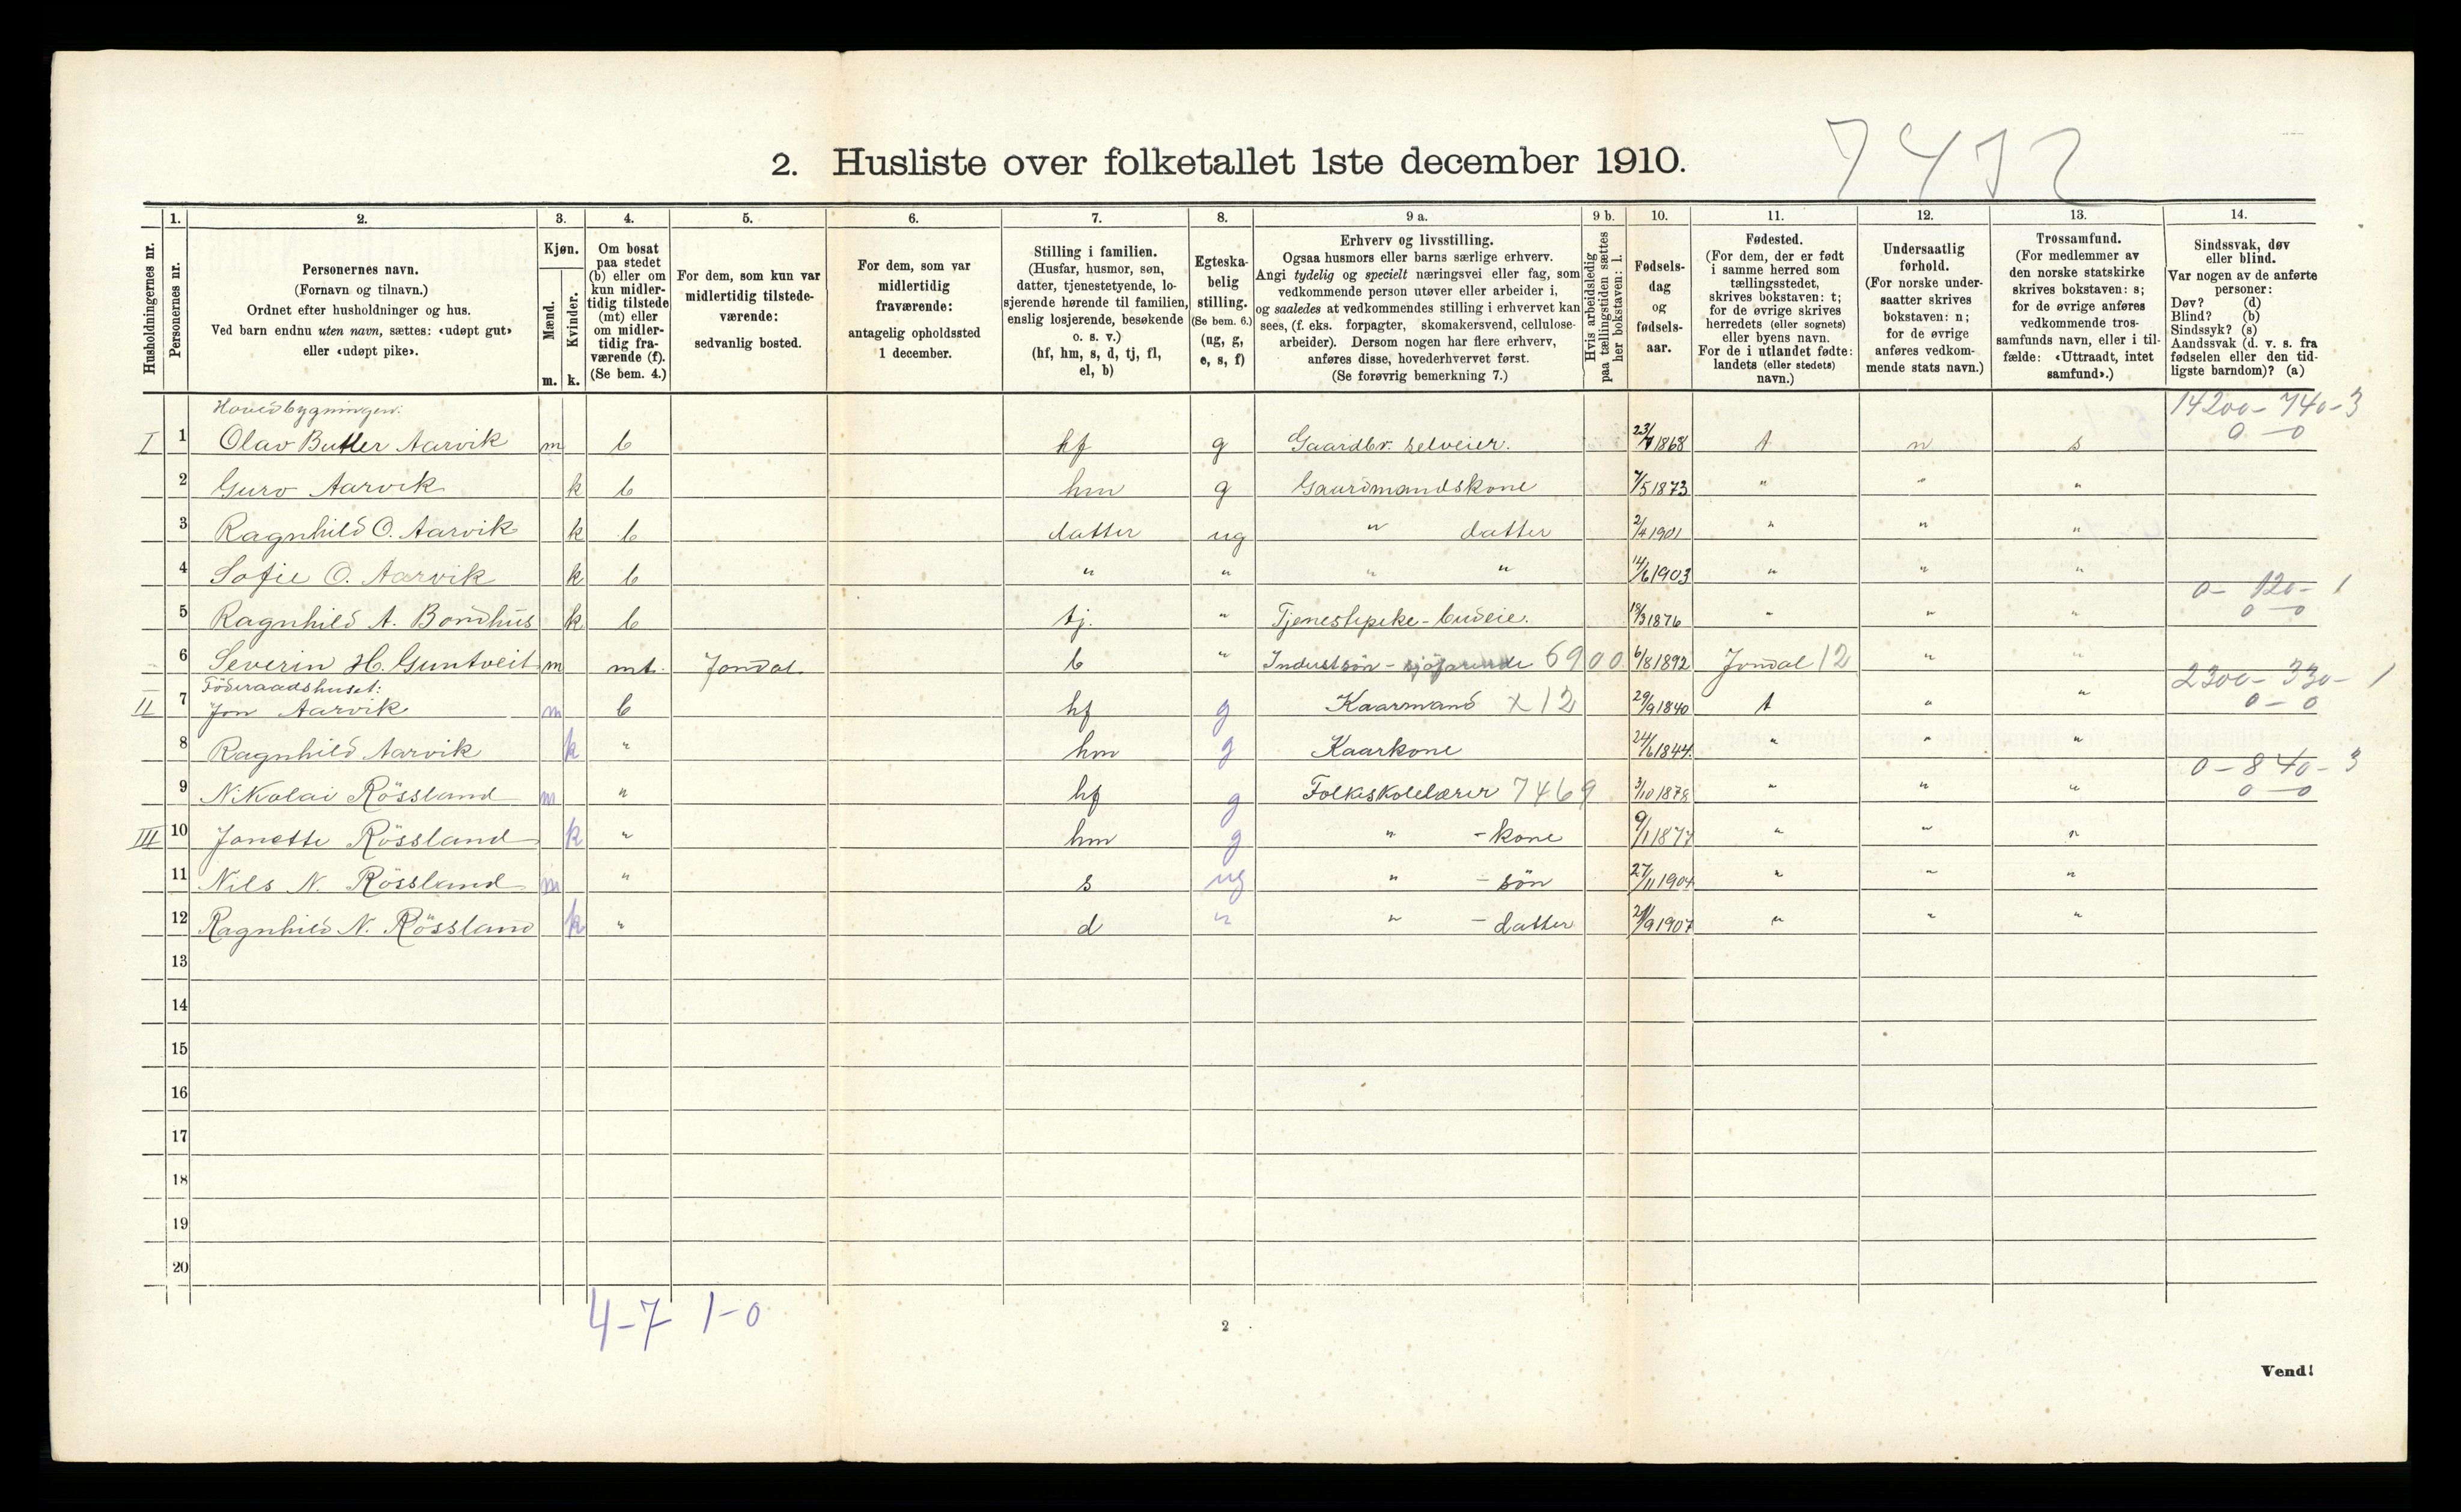 7412
2. Husliste over folketallet 1ste december 1910.
Husholdningernes nr.
1. Personernes nr.
2. Personernes navn. (Fornavn og tilnavn.) Ordnet efter husholdninger og hus. Ved barn endnu uten navn, sættes: «udøpt gut» eller «udøpt pike».
3. Kjøn. Mænd. m. Kvinder. k.
4. Om bosat paa stedet (b) eller om kun midlertidig tilstede (mt) eller om midlertidig fraværende (f). (Se bem. 4.)
5. For dem, som kun var midlertidig tilstedeværende: sedvanlig bosted.
6. For dem, som var midlertidig fraværende: antagelig opholdssted 1 december.
7. Stilling i familien. (Husfar, husmor, søn, datter, tjenestetyende, losjerende hørende til familien, enslig losjerende, besøkende o. s. v.) (hf, hm, s, d, tj, fl, el, b)
8. Egteskabelig stilling. (Se bem. 6.) (ug, g, e, s, f)
9 a. Erhverv og livsstilling. Ogsaa husmors eller barns særlige erhverv. Angi tydelig og specielt næringsvei eller fag, som vedkommende person utøver eller arbeider i, og saaledes at vedkommendes stilling i erhvervet kan sees, (f. eks. forpagter, skomakersvend, cellulosearbeider). Dersom nogen har flere erhverv, anføres disse, hovederhvervet først. (Se forøvrig bemerkning 7.)
9 b. Hvis arbeidsledig paa tællingstiden sættes her bokstaven: l.
10. Fødselsdag og fødselsaar.
11. Fødested. (For dem, der er født i samme herred som tællingsstedet, skrives bokstaven: t; for de øvrige skrives herredets (eller sognets) eller byens navn. For de i utlandet fødte: landets (eller stedets) navn.)
12. Undersaatlig forhold. (For norske undersaatter skrives bokstaven: n; for de øvrige anføres vedkommende stats navn.)
13. Trossamfund. (For medlemmer av den norske statskirke skrives bokstaven: s; for de øvrige anføres vedkommende trossamfunds navn, eller i tilfælde: «Uttraadt, intet samfund».)
14. Sindssvak, døv eller blind. Var nogen av de anførte personer: Døv? (d) Blind? (b) Sindssyk? (s) Aandssvak (d. v. s. fra fødselen eller den tidligste barndom)? (a)
Hovedbygningen: 14200 - 740 - 3
I 1 Olav Butler Aarvik m b hf g Gaardbr. selveier. 23/7 1868 t n s 0 - 0
2 Guro Aarvik k b hm g Gaardmandskone 7/5 1873 " " "
3 Ragnhild O. Aarvik k b datter ug " datter 2/4 1901 " " "
4 Sofie O. Aarvik k b " " " " 14/6 1903 " " "
0 - 120 - 1
5 Ragnhild A. Bondhus k b tj. " Tjenestepike - budeie. 18/3 1876 " " " 0 - 0
6 Severin H. Guntveit m mt. Jondal. b " Industsøn - sjøfarende 6900 6/8 1892 Jondal 12 " "
Föderaadshuset: 2300 - 330 - 1
II 7 Jon Aarvik m b hf g Kaarmand x 12 29/9 1840 t " " 0 - 0
8 Ragnhild Aarvik k " hm g Kaarkone 24/6 1844. " " "
0 - 840 - 3
9 Nikolai Rössland m " hf g Folkeskolelærer 7469 3/10 1878 " " " 0 - 0
III 10 Jonette Rössland k " hm g " - kone 9/1 1877 " " "
11 Nils N. Rössland m " s ug " - søn 27/11 1904 " " "
12 Ragnhild N. Rössland k " d " " - datter 21/9 1907 " " "
13
14
15
16
17
18
19
20
4 - 7 1 - 0
2
Vend!